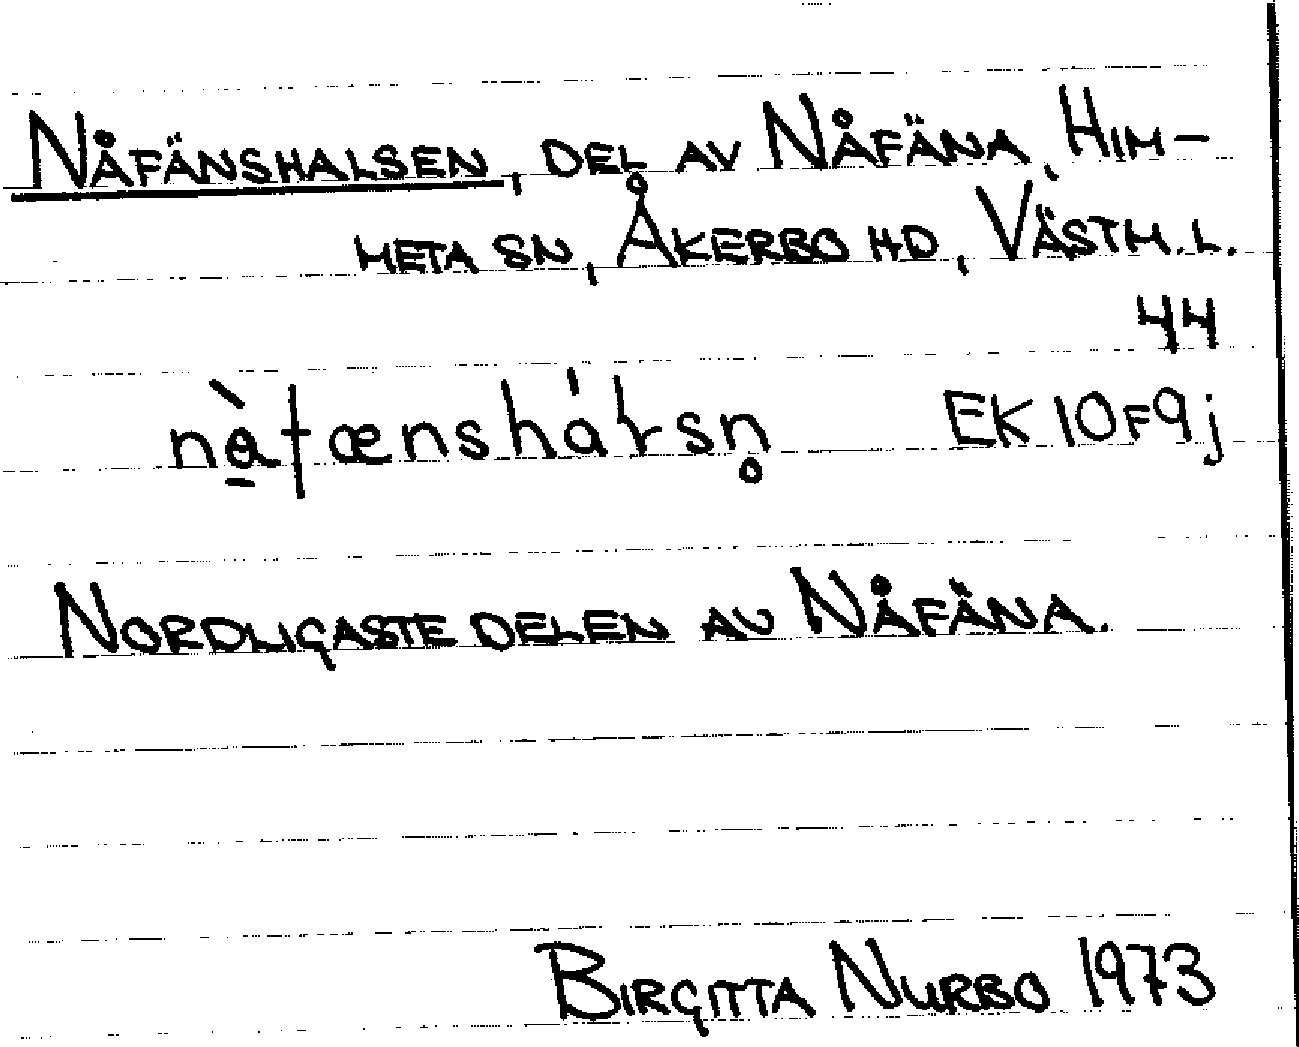 NÅFÄNSHALSEN, DEL AV NÅFÄNA, HIM-
META SN, ÅKERBO HD, VÄSTM.L.
44
EK 10F9j
NORDLIGASTE DELEN AV NÅFÄNA.
BIRGITTA NURBO 1973